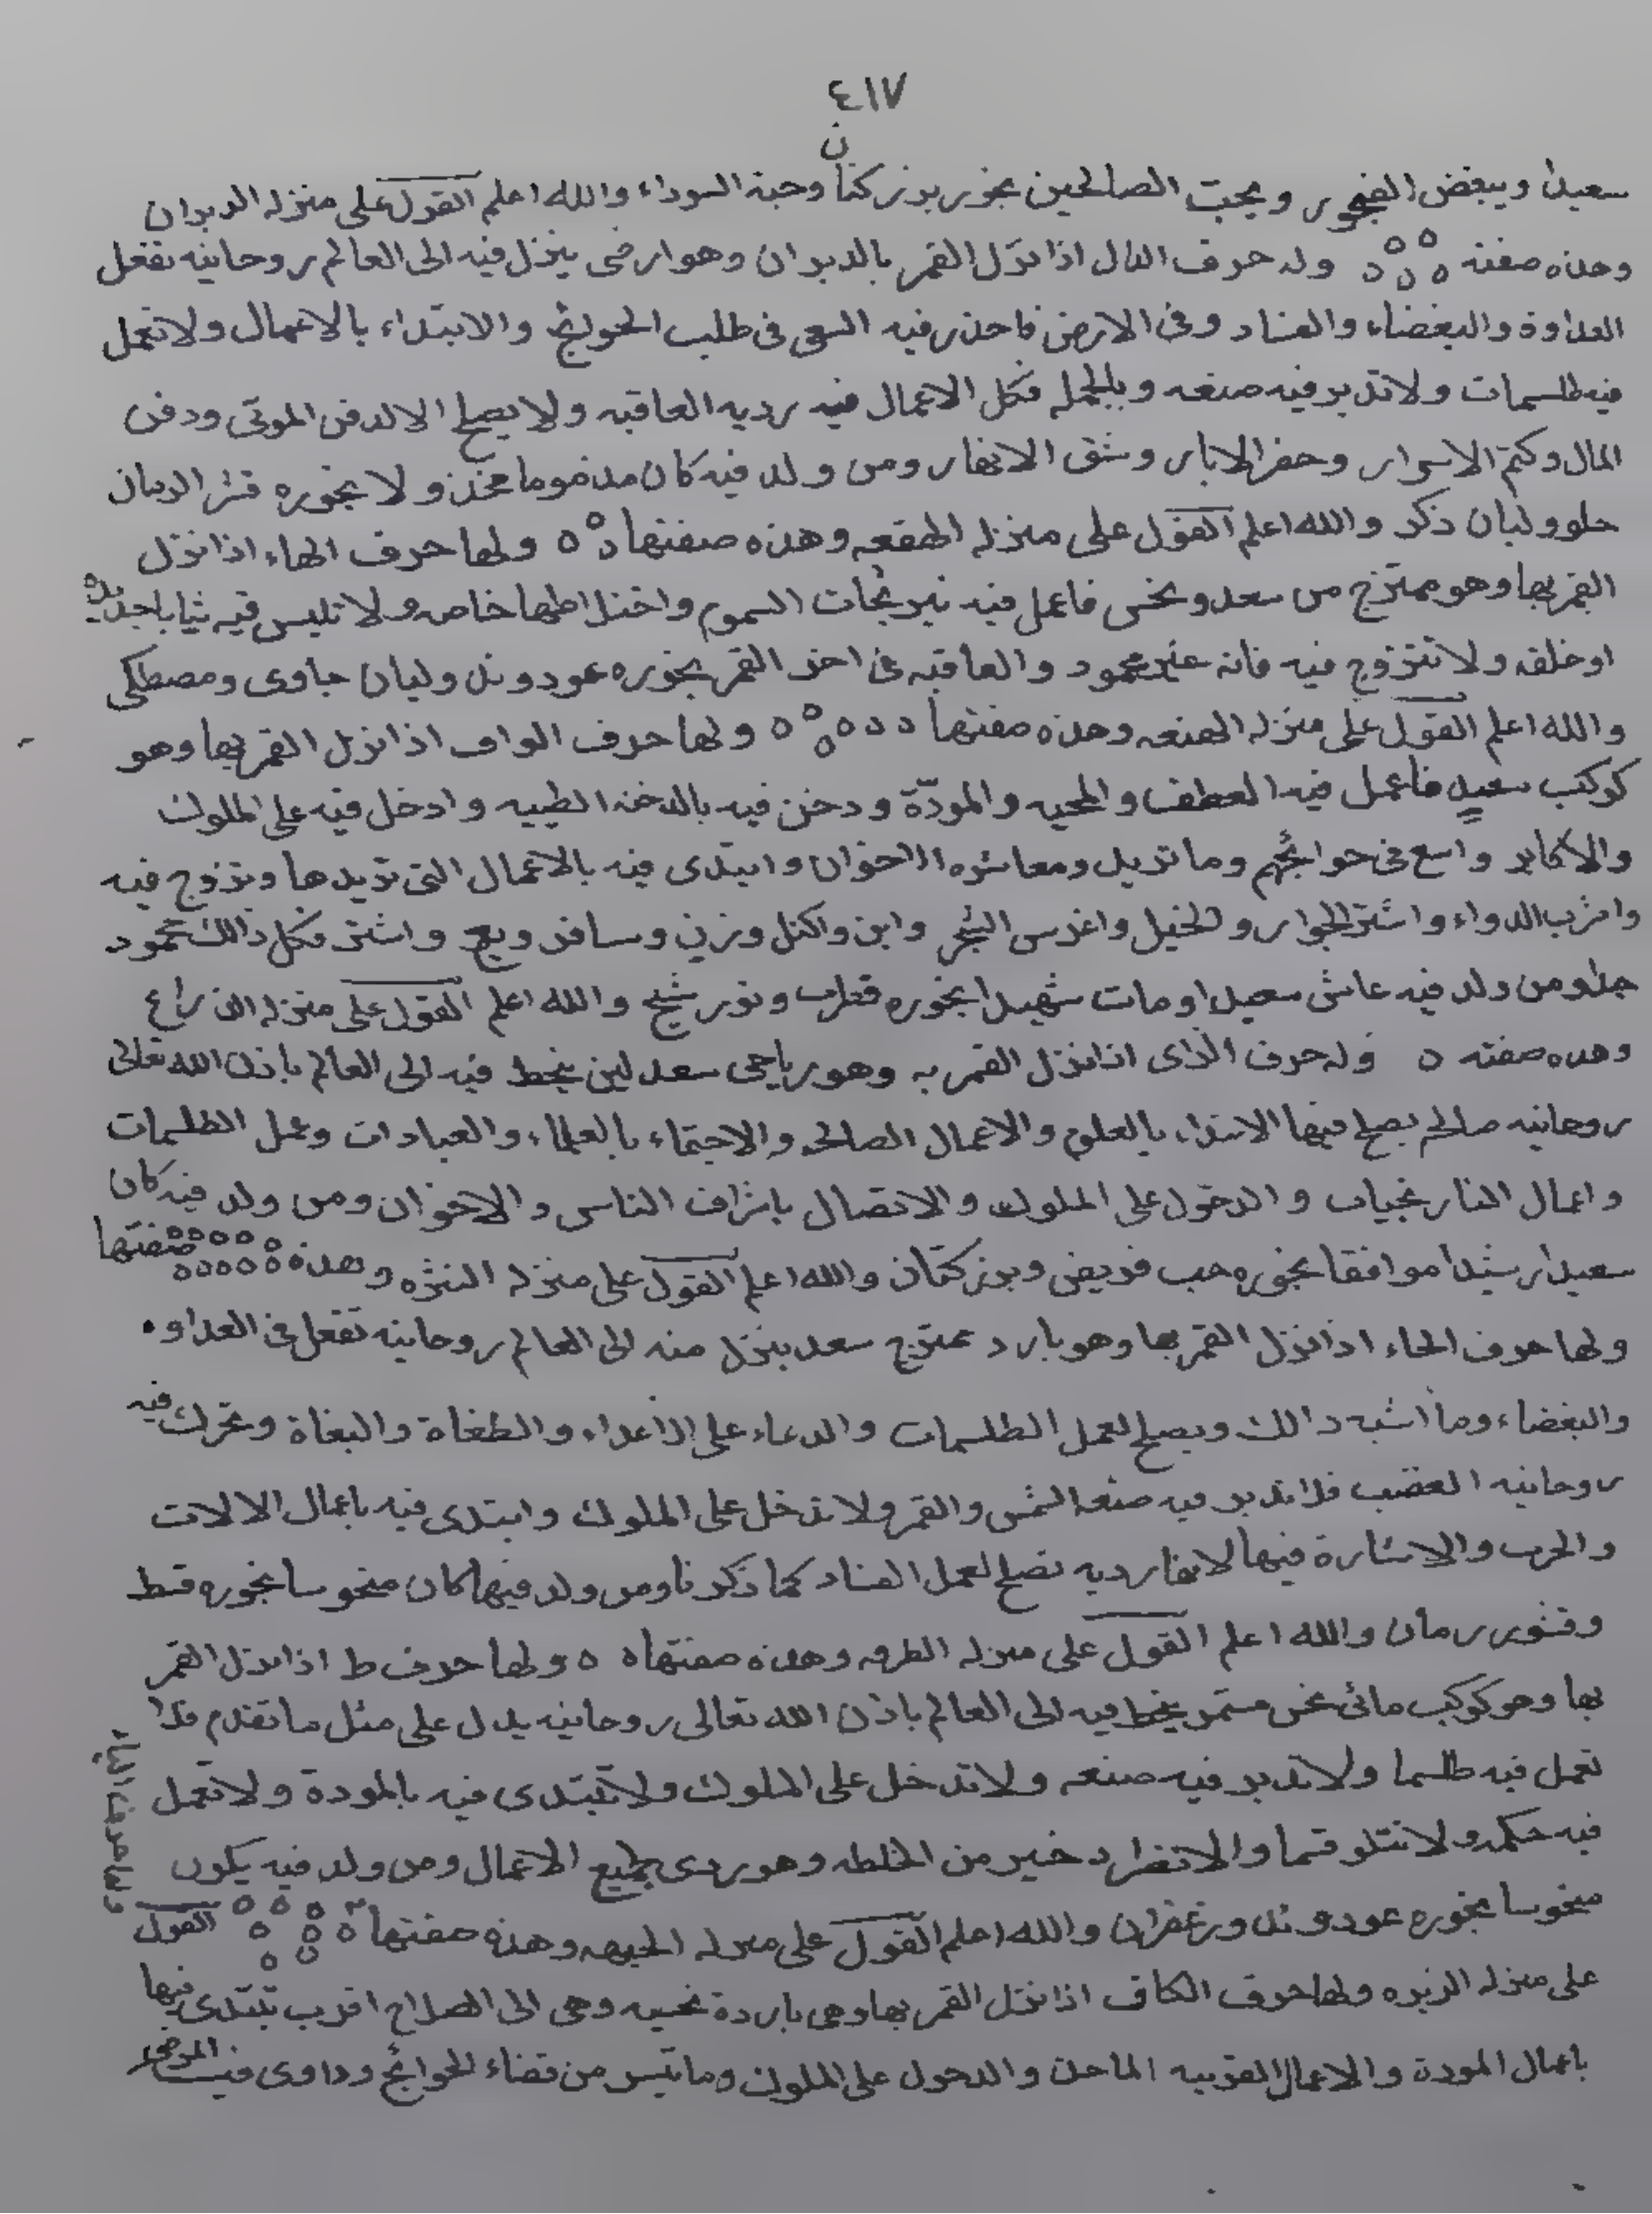 ٤١٧
سعيدا ويبغض الفجور ويحب الصالحين بخوره بزر كتان وحبة السوداء والله اعلم القول على منزلة الدبران
وهذه صفته ولد حرف الدال اذا نزل القمر بالدبران وهو ارضى ينزل فيه الى العالم روحانيه تفعل
العداوة والبغضاء والفساد وفى الارض فاحذر فيه السعى فى طلب الحوايج والابتداء بالاعمال ولا تعمل
فيه طلسمات ولا تدبر فيه صنعه وبالجمله فكل الاعمال فيه رديه العاقبه ولا يصلح الا لدفن الموتى ودفن
المال وكتم الاسرار وحفر الابار وشق الانهار ومن ولد فيه كان مذموما بخوره قشر الرمان
حلو ولبان ذكر والله اعلم القول على منزله الهقعه وهذه صفتها ولها حرف الهاء اذا نزل
القمر بها وهو ممتزج من سعد ونحس فاعمل فيه نيرنجات السموم خاصه ولا تلبس فيه ثيابا جديده
او خلقه ولا تتزوج فيه فانه غير محمود والعاقبه فى اخر القمر بخوره عود وند ولبان جاوى ومصطكى
والله اعلم القول على منزله الهنعه وهذه صفتها ولها حرف الواو اذا نزل القمر بها وهو
كوكب سعيد فاعمل فيه العطف والمحبه والمودّة ودخن فيه بالدخنه الطيبه وادخل فيه على الملوك
والاكابر واسع فى حوائجهم وما تريد ومعاشره الاخوان وابتدى فيه بالاعمال التى تريدها وتزوج فيه
واشرب الدواء واشتر الجوار والخيل واغرس الشجر وابن واكتل وزن وسافر وبع واشتر فكل دالك محمود
جدا ومن ولد فيه عاش سعيدا ومات شهيدا بخوره شيح والله اعلم القول على منزله الذراع
وهذه صفته وله حرف الزاى اذا نزل القمر به وهو رياحى سعد لين ينحط فيه الى العالم باذن الله تعالى
روحانيه صالحه يصلح فيها الابتداء بالعلوم والاعمال الصالحه والاجتماع بالعلماء والعبادات وعمل الطلسمات
واعمال النارنجيات والدخول على الملوك والاتصال باشراف الناس والاخوان ومن ولد فيه كان
سعيدا رشيدا موافقا بخوره حب وبزر كتان والله اعلم القول على منزله النثره وهذه صفتها
ولها حرف الحاء اذا نزل القمر بها وهو بارد ممتزج سعد ينزل منه الى العالم روحانيه تفعل فى العداوه
والبغضاء وما اشبه دالك ويصلح لعمل الطلسمات والدعاء على الاعداء والطغاة والبغاة وتحرك فيه
روحانيه الغضب فلا تدبر فيه صنعه الشمس والقمر ولا تدخل على الملوك وابتدى فيه باعمال الالات
والحرب والاشارة فيها لانها رديه تصلح لعمل الفساد كما ذكرنا ومن ولد فيها كان منحوسا بخوره قسط
وقشور رمان والله اعلم القول على منزله الطرفه وهذه صفتها ولها حرف ط اذا نزل القمر
بها وهو كوكب مائى نحس مستمر ينحط فيه الى العالم باذن الله تعالى روحانيه يدل على مثل ما تقدم فلا
تعمل فيه طلسما ولا تدبر فيه صنعه ولا تدخل على الملوك ولا تبتدى فيه بالمودة ولا تعمل
فيه حكمه ولا تتلو قسما والانفراد خير من الخلطه وهو ردى لجميع الاعمال ومن ولد فيه يكون
منحوسا بخوره عود وند وزعفران والله اعلم القول على منزله الجبهه وهذه صفتها القول
ولها حرف الياء
على منزله الزبره ولها حرف الكاف اذا نزل القمر بها وهى باردة نحسيه وهى الى الصلاح اقرب تبتدى فيها
باعمال المودة والاعمال القريبه والدخول على الملوك وما تيسر من قضاء الحوائج وداوى فيه المرضى